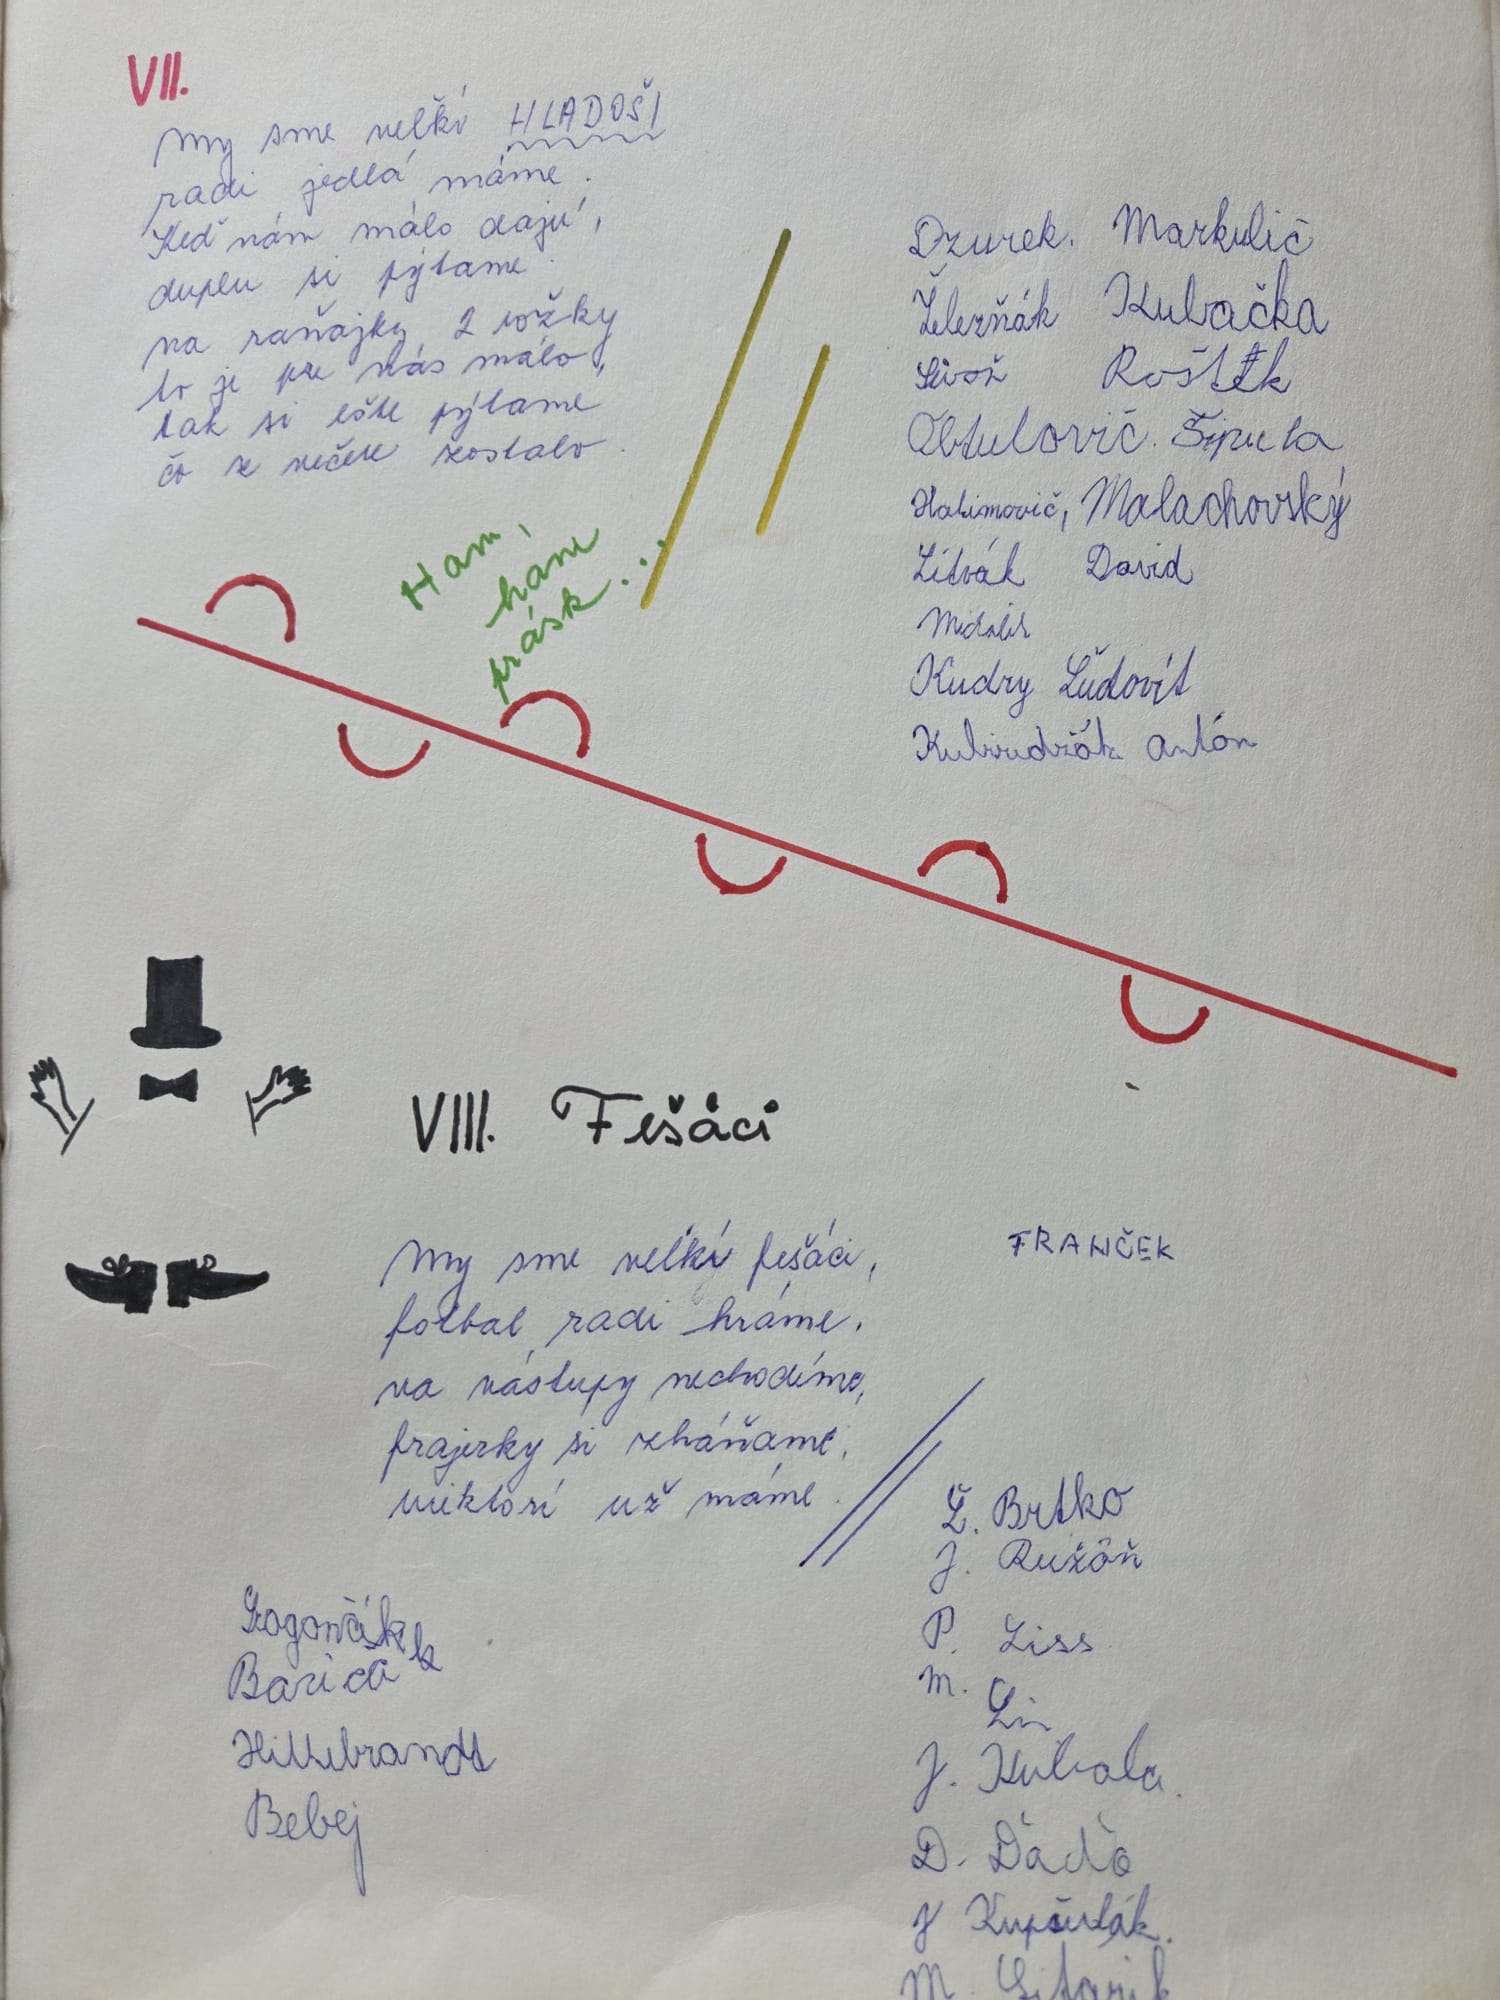 VII.
My sme veľkí HLADOŠI
radi jedlá máme.
Keď nám málo dajú,
duplu si pýtame.
na raňajky 2 rožky
to je pre nás málo,
tak si ešte pýtame
čo z večere zostalo.
Ham,
ham
prásk...
Dzurek. Markulič
Železňák Kubačka
Sivoň Roštek
Obtulovič. Šipula
Halimovič, Malachovský
Litvák David
Kudry Ľudovít
Antón
VIII. Fešáci
My sme veľkí fešáci,
fotbal radi hráme.
na nástupy nechodíme,
frajerky si zháňame,
niektorí už máme.
FRANČEK
Ľ. Brtko
J. Ružôň
P. Liss
M.
J. Kubala.
D. Ďaďo
J Kupčulák.
M. Sitarik
Gogončák
Baricák
Hillebrandt
Bebej